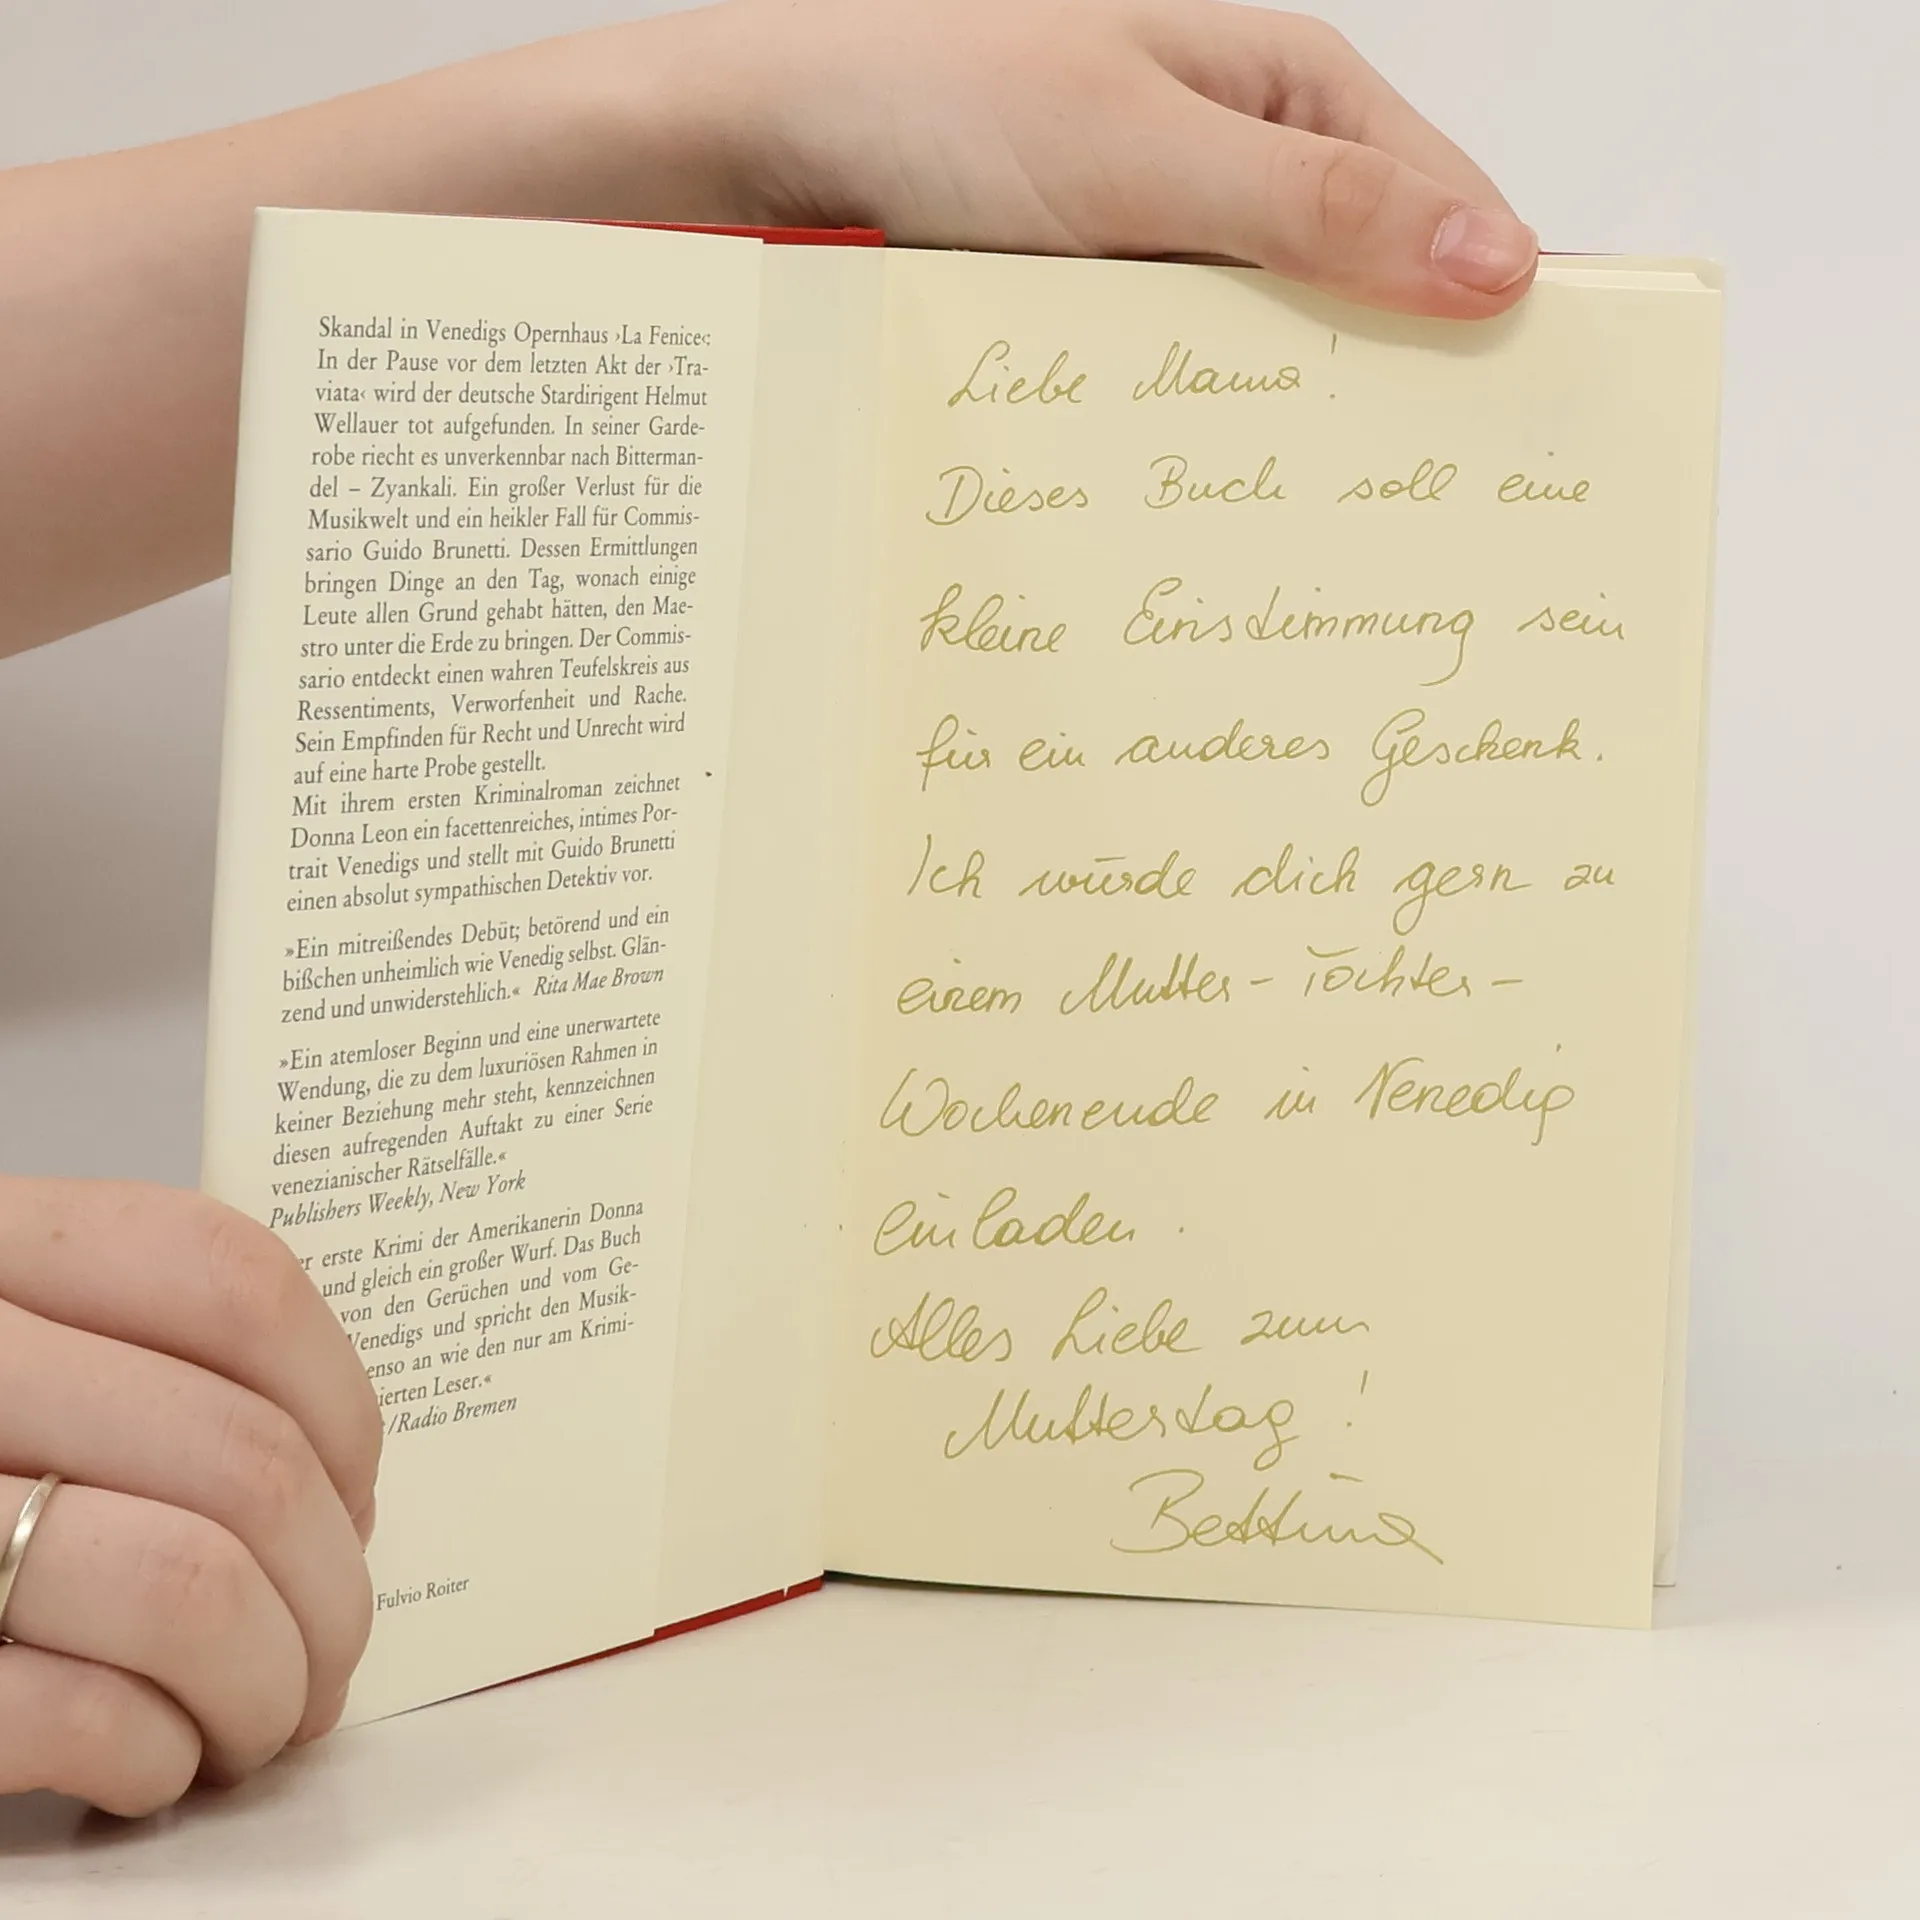 Skandal in Venedigs Opernhaus ›La Fenice‹:
In der Pause vor dem letzten Akt der ›Tra-
viata‹ wird der deutsche Stardirigent Helmut
Wellauer tot aufgefunden. In seiner Garde-
robe riecht es unverkennbar nach Bitterman-
del – Zyankali. Ein großer Verlust für die
Musikwelt und ein heikler Fall für Commis-
sario Guido Brunetti. Dessen Ermittlungen
bringen Dinge an den Tag, wonach einige
Leute allen Grund gehabt hätten, den Mae-
stro unter die Erde zu bringen. Der Commis-
sario entdeckt einen wahren Teufelskreis aus
Ressentiments, Verworfenheit und Rache.
Sein Empfinden für Recht und Unrecht wird
auf eine harte Probe gestellt.
Mit ihrem ersten Kriminalroman zeichnet
Donna Leon ein facettenreiches, intimes Por-
trait Venedigs und stellt mit Guido Brunetti
einen absolut sympathischen Detektiv vor.
»Ein mitreißendes Debüt; betörend und ein
bißchen unheimlich wie Venedig selbst. Glän-
zend und unwiderstehlich.« Rita Mae Brown
»Ein atemloser Beginn und eine unerwartete
Wendung, die zu dem luxuriösen Rahmen in
keiner Beziehung mehr steht, kennzeichnen
diesen aufregenden Auftakt zu einer Serie
venezianischer Rätselfälle.«
Publishers Weekly, New York
erste Krimi der Amerikanerin Donna
und gleich ein großer Wurf. Das Buch
von den Gerüchen und vom Ge-
Venedigs und spricht den Musik-
enso an wie den nur am Krimi-
ierten Leser.«
/Radio Bremen
Fulvio Roiter
Liebe Mama!
Dieses Buch soll eine
kleine Einstimmung sein
für ein anderes Geschenk.
Ich würde dich gern zu
einem Mutter-Töchter-
Wochenende in Venedig
einladen.
Alles Liebe zum
Muttertag!
Bettina